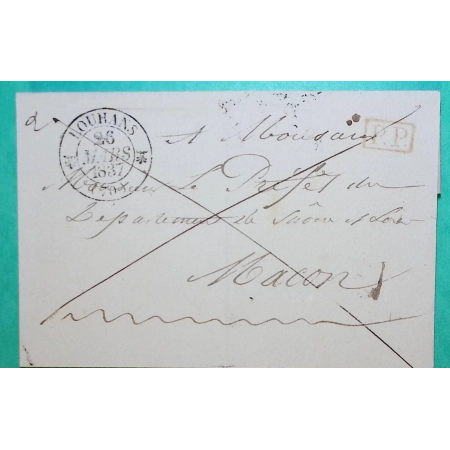 LOUHANS
26
MARS
1837
(70)
P.P.
A Monsieur
Monsieur le Préfet du
Département de Saône et Loire
Macon